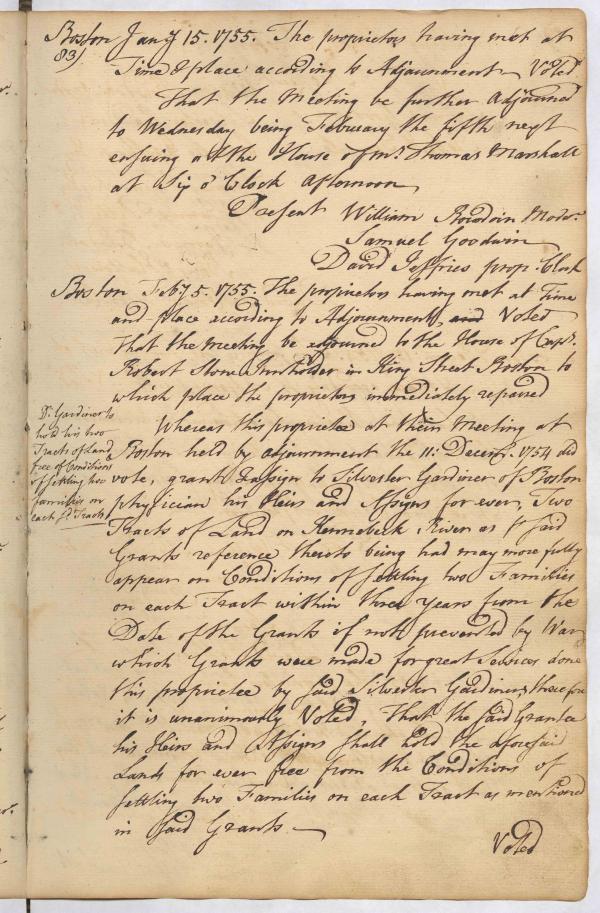 Boston Jany 15. 1755. The proprietors having met at
83)
Time & place according to Adjournment Voted
That the Meeting be further adjourned
to Wednesday being February the fifth next
ensuing at the House of mr. Thomas Marshall
at Six o'Clock afternoon
Present William Bowdoin Moder.
Samuel Goodwin
David Jeffries prop. Clerk
Boston Feby 5. 1755. The proprietors having met at Time
and place according to Adjournment, and Voted
That the meeting be adjourned to the House of Capt.
Robert Stone Innholder in King Street Boston to
which place the proprietors immediately repaired
Dr. Gardiner to
hold his two
Tracts of Land
free of Conditions
of settling two
families on
each sd. Tracts
Whereas this proprietee at their Meeting at
Boston held by adjournment the 11: Decemr. 1754 did
vote, grant & assign to Silvester Gardiner of Boston
physician his Heirs and Assigns for ever, Two
Tracts of Land on Kennebeck River as sd. said
Grants reference thereto being had may more fully
appear on Conditions of settling two Families
on each Tract within three years from the
Date of the Grants if not prevented by War
which Grants were made for great Services done
this proprietee by said Silvester Gardiner, therefore
it is unanimously Voted, That the said Grantee
his Heirs and Assigns shall hold the aforesaid
Lands for ever free from the Conditions of
settling two Families on each Tract as mentioned
in said Grants.
Voted